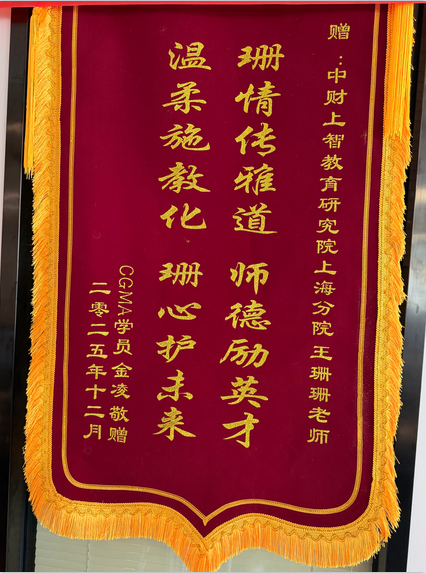 赠：中财上智教育研究院上海分院王珊珊老师
珊情传雅道 师德励英才
温柔施教化 珊心护未来
CGMA学员金凌敬赠
二零二五年十二月